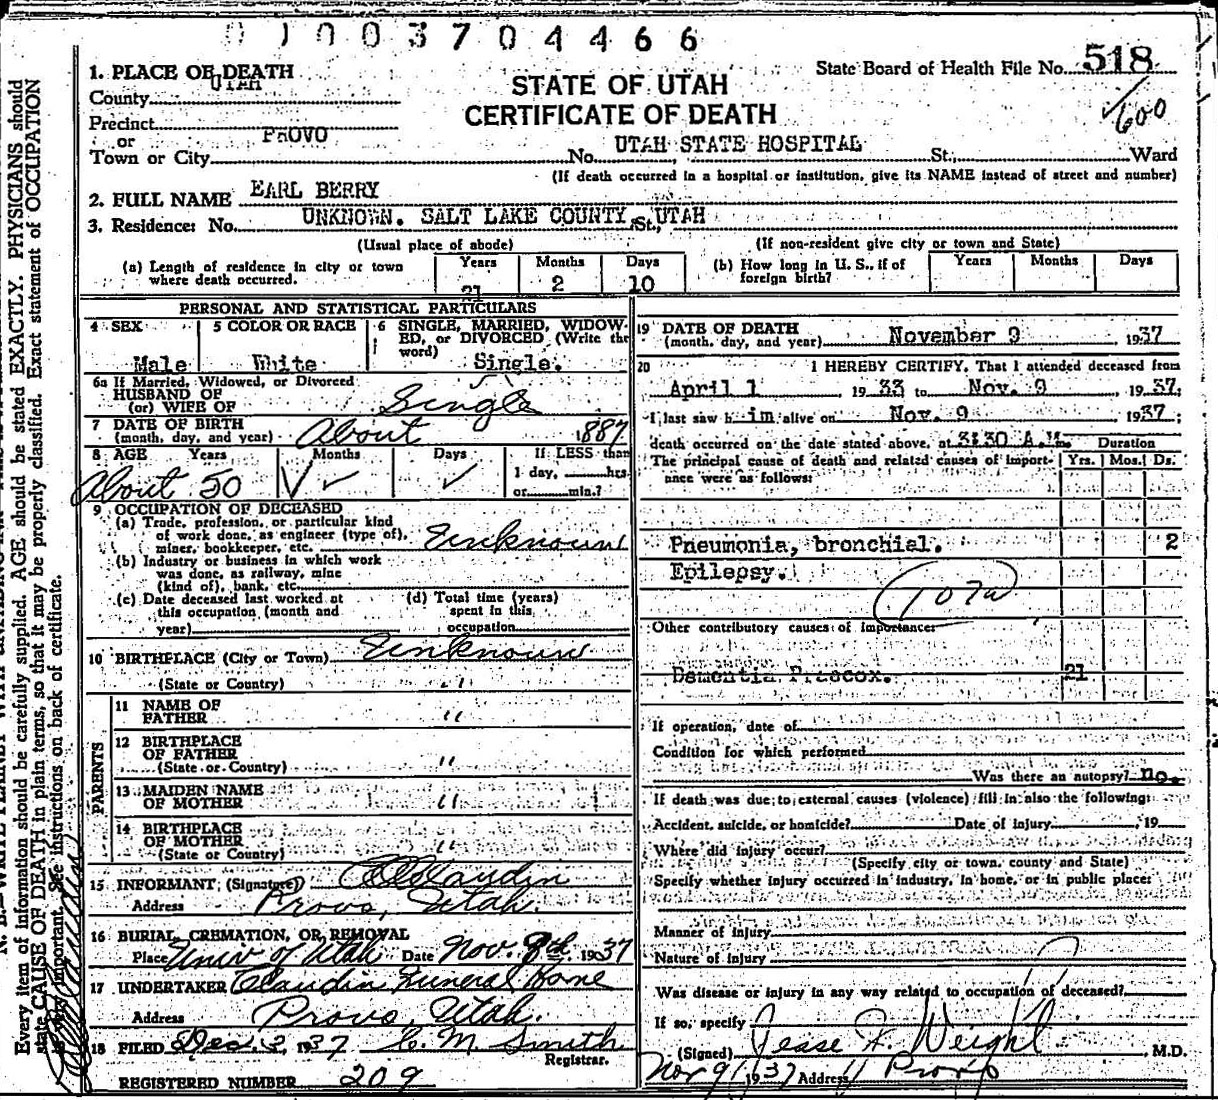 0 1 0 0 3 7 0 4 4 6 6
State Board of Health File No. 518
600
STATE OF UTAH
CERTIFICATE OF DEATH
1. PLACE OF DEATH
County UTAH
Precinct
or PROVO
Town or City No. UTAH STATE HOSPITAL St., Ward
(If death occurred in a hospital or institution, give its NAME instead of street and number)
2. FULL NAME EARL BERRY
3. Residence: No. UNKNOWN. SALT LAKE COUNTY, St., UTAH
(Usual place of abode) (If non-resident give city or town and State)
(a) Length of residence in city or town where death occurred. Years 21 Months 2 Days 10
(b) How long in U. S., if of foreign birth? Years Months Days
PERSONAL AND STATISTICAL PARTICULARS
4 SEX Male
5 COLOR OR RACE White
6 SINGLE, MARRIED, WIDOWED, or DIVORCED (Write the word) Single.
6a If Married, Widowed, or Divorced
HUSBAND OF
(or) WIFE OF Single
7 DATE OF BIRTH
(month, day, and year) About 1887
8 AGE Years Months Days If LESS than
1 day, hrs.
or min.?
About 50
9 OCCUPATION OF DECEASED
(a) Trade, profession, or particular kind
of work done, as engineer (type of),
miner, bookkeeper, etc. Unknown
(b) Industry or business in which work
was done, as railway, mine
(kind of), bank, etc.
(c) Date deceased last worked at
this occupation (month and
year)
(d) Total time (years)
spent in this
occupation
10 BIRTHPLACE (City or Town) Unknown
(State or Country) "
PARENTS
11 NAME OF
FATHER "
12 BIRTHPLACE
OF FATHER
(State or Country) "
13 MAIDEN NAME
OF MOTHER "
14 BIRTHPLACE
OF MOTHER
(State or Country) "
15 INFORMANT (Signature) Claudin
Address Provo, Utah.
16 BURIAL, CREMATION, OR REMOVAL
Place Univ of Utah Date Nov. 1937
17 UNDERTAKER Claudin Funeral Home
Address Provo, Utah.
18 FILED Dec. 3, 1937 C. M. Smith
Registrar.
REGISTERED NUMBER 209
19 DATE OF DEATH
(month, day, and year) November 9, 1937
20 I HEREBY CERTIFY, That I attended deceased from
April 1 1933 to Nov. 9, 1937;
I last saw him alive on Nov. 9 1937;
death occurred on the date stated above, at 3:30 A.M. Duration
The principal cause of death and related causes of importance were as follows: Yrs. Mos. Ds.
Pneumonia, bronchial. 2
Epilepsy.
Other contributory causes of importance:
Dementia Praecox. 21
If operation, date of
Condition for which performed
Was there an autopsy? no.
If death was due to external causes (violence) fill in also the following:
Accident, suicide, or homicide? Date of injury 19
Where did injury occur?
(Specify city or town, county and State)
Specify whether injury occurred in industry, in home, or in public place:
Manner of injury
Nature of injury
Was disease or injury in any way related to occupation of deceased?
If so, specify
(Signed) Jesse F. Weight M.D.
Nov 9 1937 Address Provo
Every item of information should be carefully supplied. AGE should be stated EXACTLY. PHYSICIANS should
state CAUSE OF DEATH in plain terms, so that it may be properly classified. Exact statement of OCCUPATION
is very important. See instructions on back of certificate.